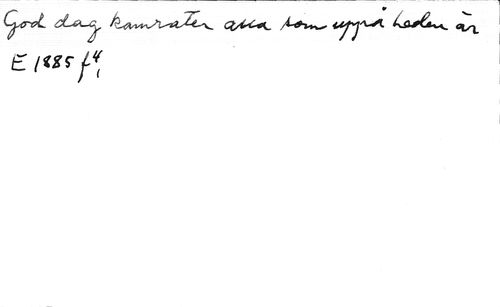 God dag kamrater alla som uppå heden är
E 1885 f 4,1